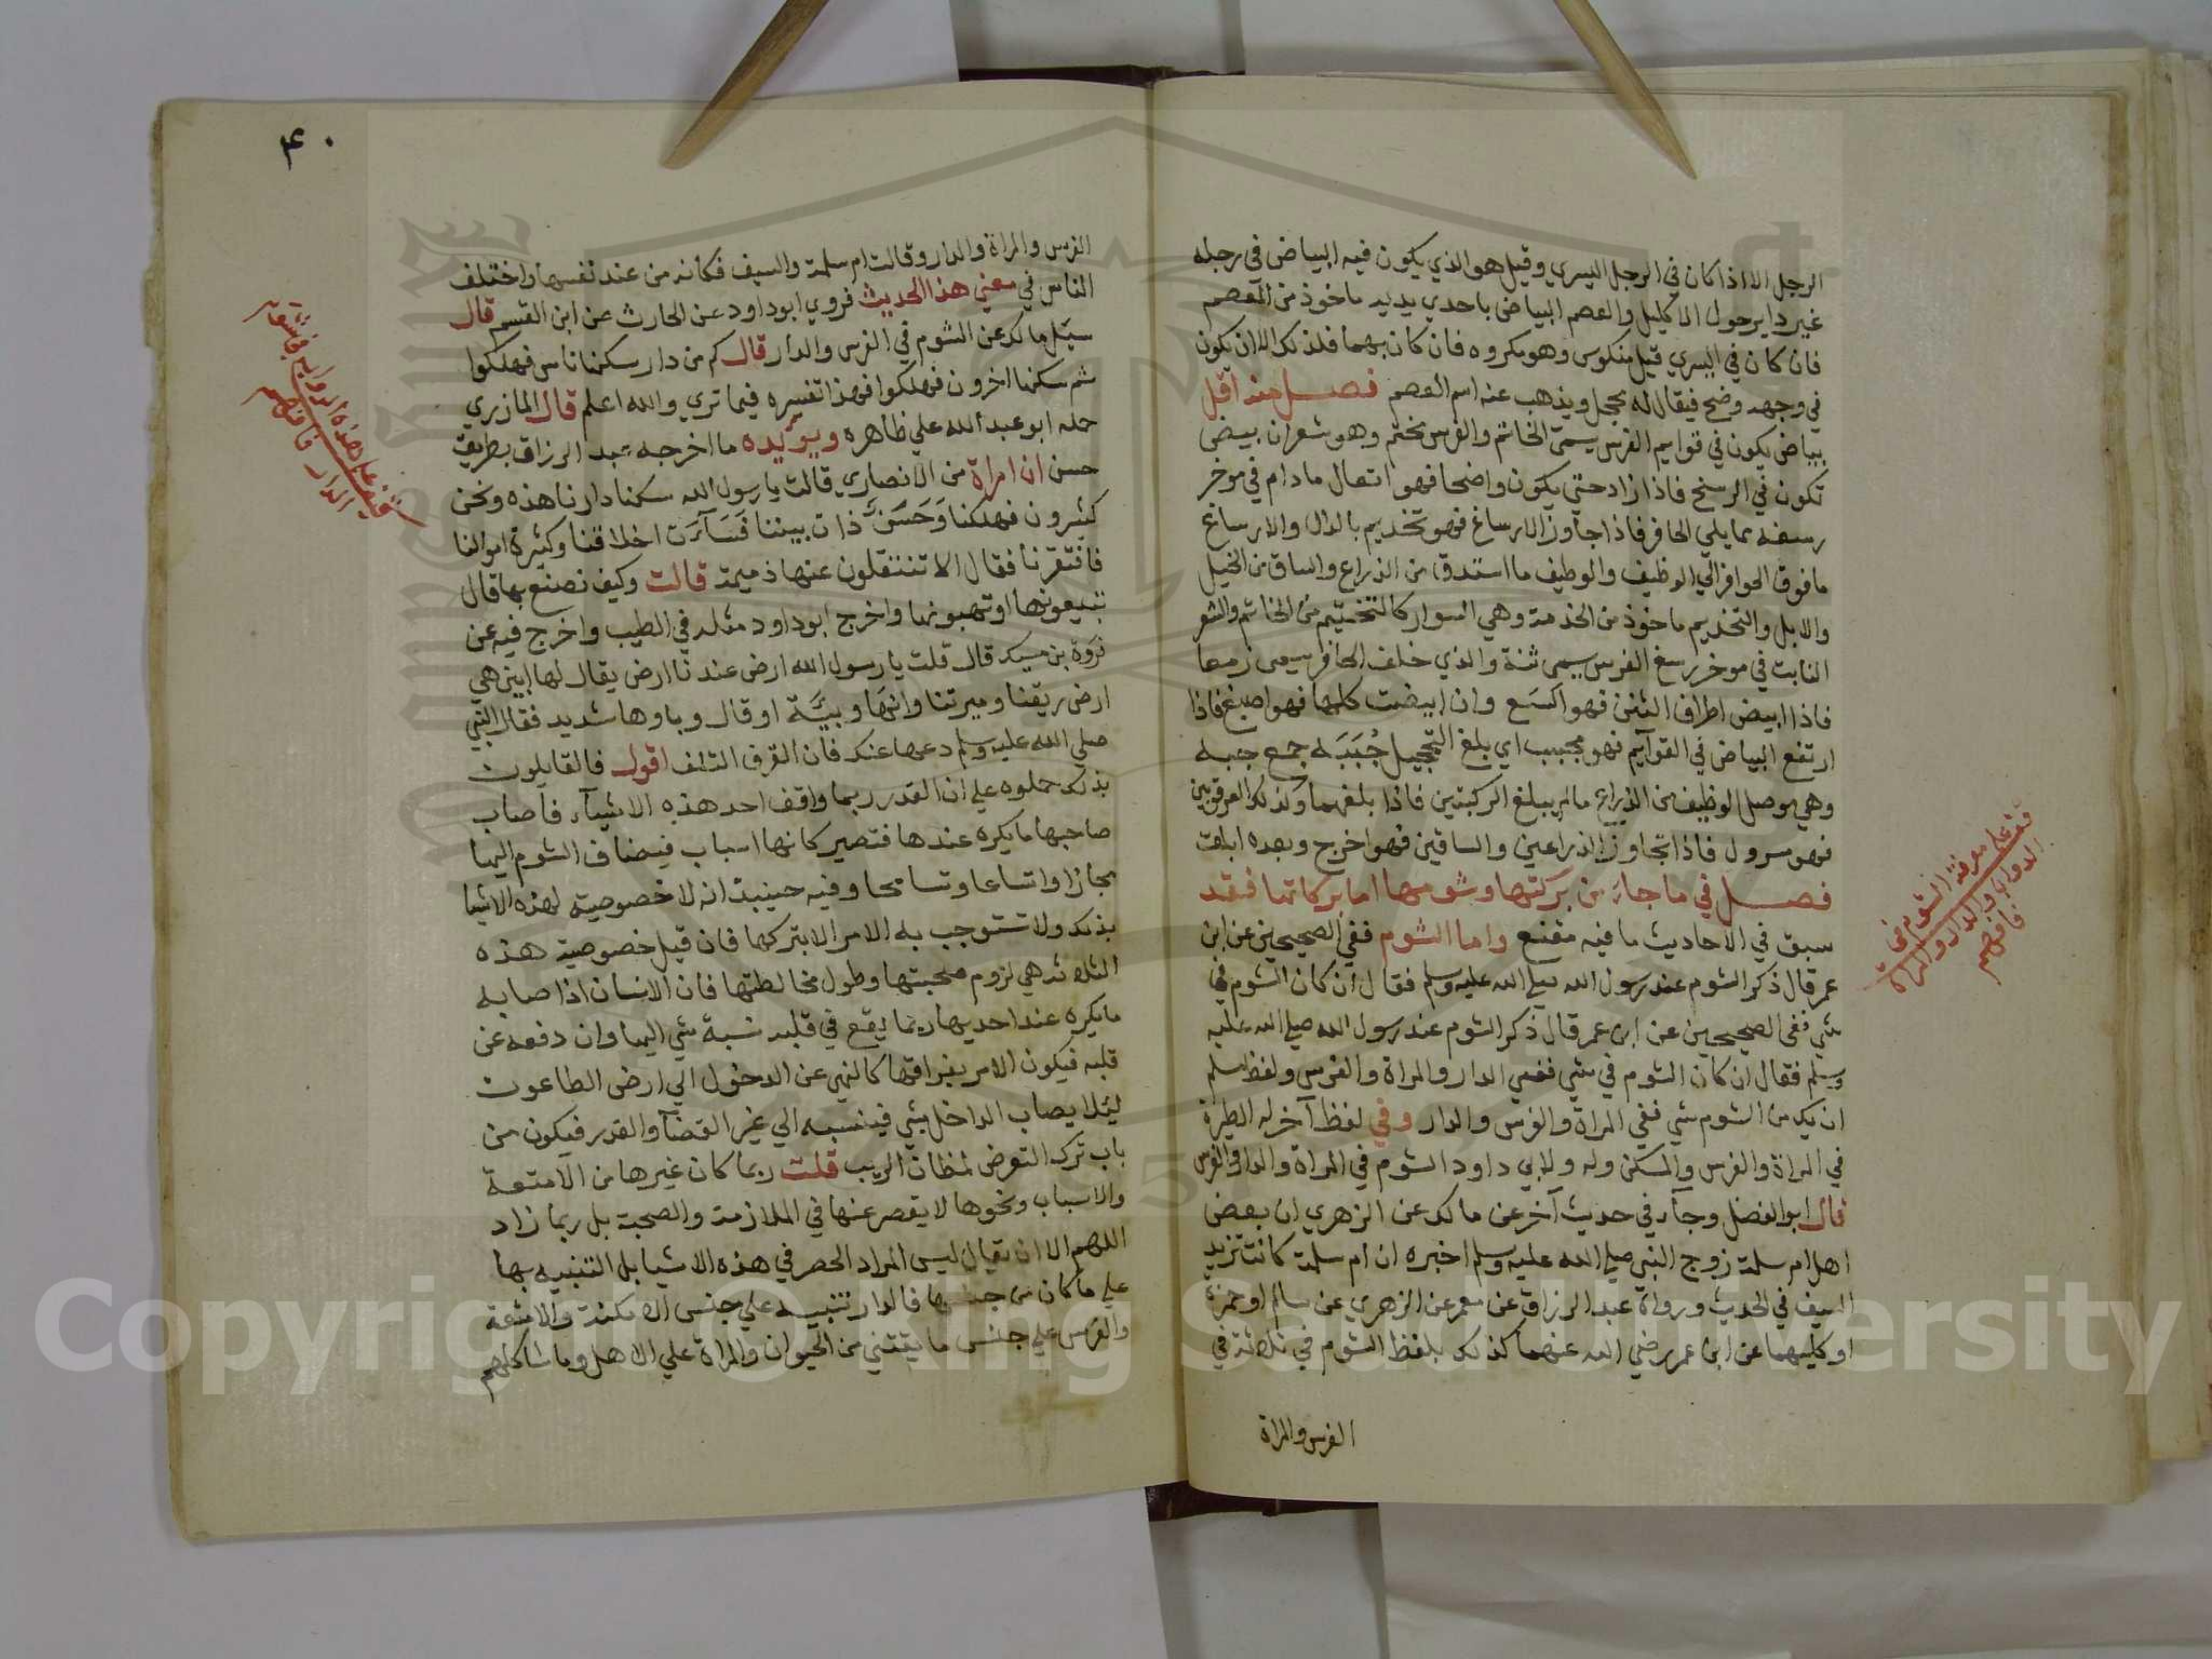 الرجل الا اذا كان في الرجل اليسري وقيل هو الذي يكون فيه البياض في رجله
غير داير حول الاكليل والعصم البياض باحدي يديه ماخوذ من المعصم
فان كان في اليسري قيل منكوس وهو مكروه فان كان بهما فلذلك الا ان يكون
في وجهه وضح فيقال له محجل ويذهب عنه اسم العصم فصل منه اقل
بياض يكون في قوايم الفرس يسمى الخاتم والفرس مختم وهو شعرات بيض
تكون في الرسغ فاذا زاد حتي يكون واضحا فهو انتعال ما دام في موخر
رسغه مما يلي الحافر فاذا جاوز الارساغ فهو تخديم بالدال والارساغ
ما فوق الحوافر الي الوظيف والوطيف ما استدق من الذراع والساق من الخيل
والابل والتخديم ماخوذ من الخدمة وهي السوار كالتختيم من الخاتم والشعر
النابت في موخر رسغ الفرس يسمى ثنة والذي خلف الحافر يسمى زمعا
فاذا ابيض اطراف الثنن فهو اكسع وان ابيضت كلها فهو اصبغ فاذا
ارتفع البياض في القوآيم فهو مجبب اي بلغ التحجيل جُبَبَه جمع جبه
وهي موصل الوظيف من الذراع مالم يبلغ الركبتين فاذا بلغهما وكذلك العرقوبين
فهو مسرول فاذا تجاوز الذراعين والساقين فهو اخرج وبعده ابلق
فصل في ما جاء من بركتها وشومها اما بركاتها فقد
سبق في الاحاديث ما فيه مقنع واما الشوم ففي الصحيحين عن ابن
عمر قال ذكر الشوم عند رسول الله صلي الله عليه وسلم فقال ان كان الشوم في
شي ففي الصحيحين عن ابن عمر قال ذكر الشوم عند رسول الله صلي الله عليه
وسلم فقال ان كان الشوم في شي ففي الدار والمراة والفرس ولفظ مسلم
ان يك من الشوم شي ففي المراة والفرس والدار وفي لفظ آخر له الطيرة
في المراة والفرس والمسكن وله ولابي داود الشوم في المراة والدار والفرس
قال ابو الفضل وجآء في حديث آخر عن مالك عن الزهري ان بعض
اهل ام سلمة زوج النبي صلي الله عليه وسلم اخبره ان ام سلمة كانت تزيد
السيف في الحديث ورواه عبد الرزاق عن معمر عن الزهري عن سالم او حمزة
او كليهما عن ابن عمر رضي الله عنهما كذلك بلفظ الشوم في ثلاثة في
الفرس والمراة
قف علي معرفة الشوم في
الدواب والدار والمراة
فافهم
٤٠
الفرس والمراة والدار وقالت ام سلمة والسيف فكانه من عند نفسها واختلف
الناس في معني هذا الحديث فروي ابو داود عن الحارث عن ابن القسم قال
سيل مالك عن الشوم في الفرس والدار قال كم من دار سكنها ناس فهلكوا
ثم سكنها اخرون فهلكوا فهذا تفسيره فيما تري والله اعلم قال المازري
حمله ابو عبد الله علي ظاهره ويويده ما اخرجه عبد الرزاق بطريق
حسن ان امراة من الانصاري قالت يا رسول الله سكنا دارنا هذه ونحن
كثيرون فهلكنا وَحَسَنَ ذات بيننا فَسَآءَت اخلاقنا وكثيرة اموالنا
فافتقرنا فقال الا تنتقلون عنها ذميمة قالت وكيف نصنع بها قال
تبيعونها او تهبونها واخرج ابو داود مثله في الطيب واخرج فيه عن
فروة بن مسيك قال قلت يا رسول الله ارض عندنا ارض يقال لها ابين هي
ارض ريقنا وميرتنا وانها وبيَّة او قال وباوها شديد فقال النبي
صلي الله عليه وسلم دعها عنك فان القرف التلف اقول فالقايلون
بذلك حملوه علي ان القدر ربما وافق احد هذه الاشيآء فاصاب
صاحبها ما يكره عندها فتصير كانها اسباب فيضاف الشوم اليها
مجازا واتساعا وتسامحا وفيه حينيذ انه لا خصوصية لهذه الاشيا
بذلك ولا تستوجب به الامر الا بتركها فان قيل خصوصية هذه
الثلاثة هي لزوم صحبتها وطول مخالطتها فان الانسان اذا صابه
ما يكره عند احديها ربما يقع في قلبه نسبة شي اليها وان دفعه عن
قلبه فيكون الامر بفراقها كالنهي عن الدخول الي ارض الطاعون
ليلا يصاب الداخل بشي فينسبه الي غير القضآ والقدر فيكون من
باب ترك التعرض لمظان الريب قلت ربما كان غيرها من الامتعة
والاسباب ونحوها لا يقصر عنها في الملازمة والصحبة بل ربما زاد
اللهم الا ان يقال ليس المراد الحصر في هذه الاشيا بل التنبيه بها
علي ما كان من جنسها فالدار تنبيه علي جنس الامكنة والامتعة
والفرس علي جنس ما يقتني من الحيوان والمراة علي الاهل وما شاكلهم
الدار فافهم
Copyright © King Saud University